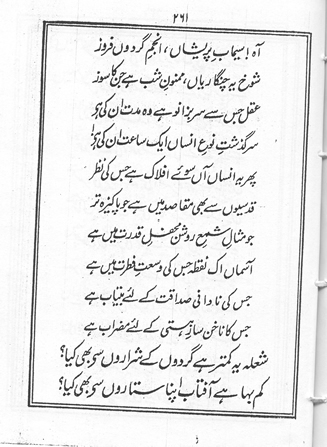 ۲۶۱
آہ! سیمابِ پریشاں، انجمِ گردوں فروز
شوخ یہ چنگاریاں، ممنونِ شب ہے جن کا سوز
عقل جس سے سر بہ زانو ہے وہ مدت ان کی ہے
سرگذشتِ نوعِ انساں ایک ساعت ان کی ہے
پھر یہ انساں آں سوئے افلاک ہے جس کی نظر
قدسیوں سے بھی مقاصد میں ہے جو پاکیزہ تر
جو مثالِ شمع روشن محفلِ قدرت میں ہے
آسماں اک نقطہ جس کی وسعتِ فطرت میں ہے
جس کی نادانی صداقت کے لئے بیتاب ہے
جس کا ناخن سازِ ہستی کے لئے مضراب ہے
شعلہ یہ کمتر ہے گردوں کے شراروں سے بھی کیا؟
کم بہا ہے آفتاب اپنا ستاروں سے بھی کیا؟